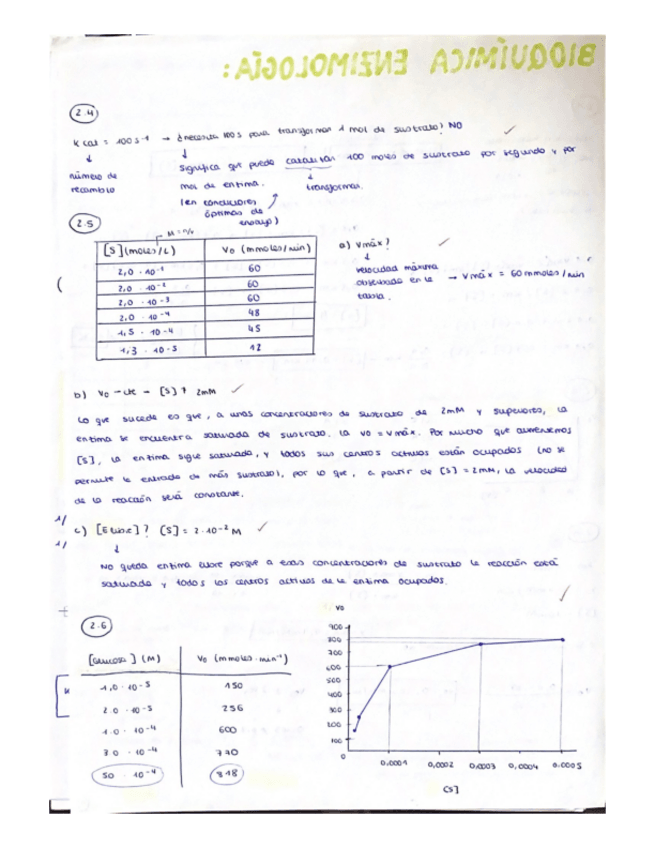 BIOQUÍMICA ENZIMOLOGÍA:
2.4
Kcat = 100 s-1 → ¿necesita 100s para transformar 1 mol de sustrato? NO
número de recambio
Significa que puede catalizar 100 moles de sustrato por segundo y por
mol de enzima. transformar.
(en condiciones
óptimas de
ensayo)
2.5
M = n/v
[S] (moles/L) V0 (mmoles/min)
2,0 · 10-1 60
2,0 · 10-2 60
2,0 · 10-3 60
2,0 · 10-4 48
1,5 · 10-4 45
1,3 · 10-5 12
a) Vmáx?
velocidad máxima
observada en la → Vmáx = 60 mmoles/min
tabla.
b) V0 - cte - [S] ? 2mM
Lo que sucede es que, a unas concentraciones de sustrato de 2mM y superiores, la
enzima se encuentra saturada de sustrato. La V0 = Vmáx. Por mucho que aumentemos
[S], la enzima sigue saturada, y todos sus centros activos están ocupados (no se
permite la entrada de más sustrato), por lo que, a partir de [S] = 2mM, la velocidad
de la reacción será constante.
c) [E libre]? [S] = 2·10-2 M
No queda enzima libre porque a esas concentraciones de sustrato la reacción está
saturada y todos los centros activos de la enzima ocupados.
2.6
[Glucosa] (M) V0 (mmoles·min-1)
1,0 · 10-5 150
2.0 · 10-5 256
1.0 · 10-4 600
3.0 · 10-4 770
50 · 10-4 818
V0
900
800
700
600
500
400
300
200
100
0
0,0001 0,0002 0,0003 0,0004 0.0005
[S]